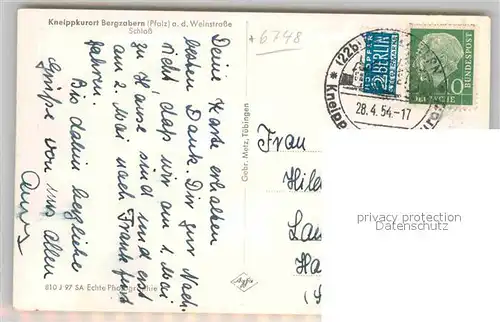 Kneippkurort Bergzabern (Pfalz) a. d. Weinstraße
Schloß
*6748
Deine Karte erhalten
besten Dank. Dir zur Nach-
richt, daß wir am 1. Mai
zu Hause sind und erst
am 2. Mai nach Frankfurt
fahren.
Bis dahin herzliche
Grüße von uns allen
810 J 97 SA Echte Photographie
Gebr. Metz, Tübingen
Agfa
(22b)
Kneipp
28.4.54.-17
NOTOPFER
2 BERLIN
STEUERMARKE
DEUTSCHE
BUNDESPOST
10
Frau
Hil
La
Ha
privacy protection
Datenschutz